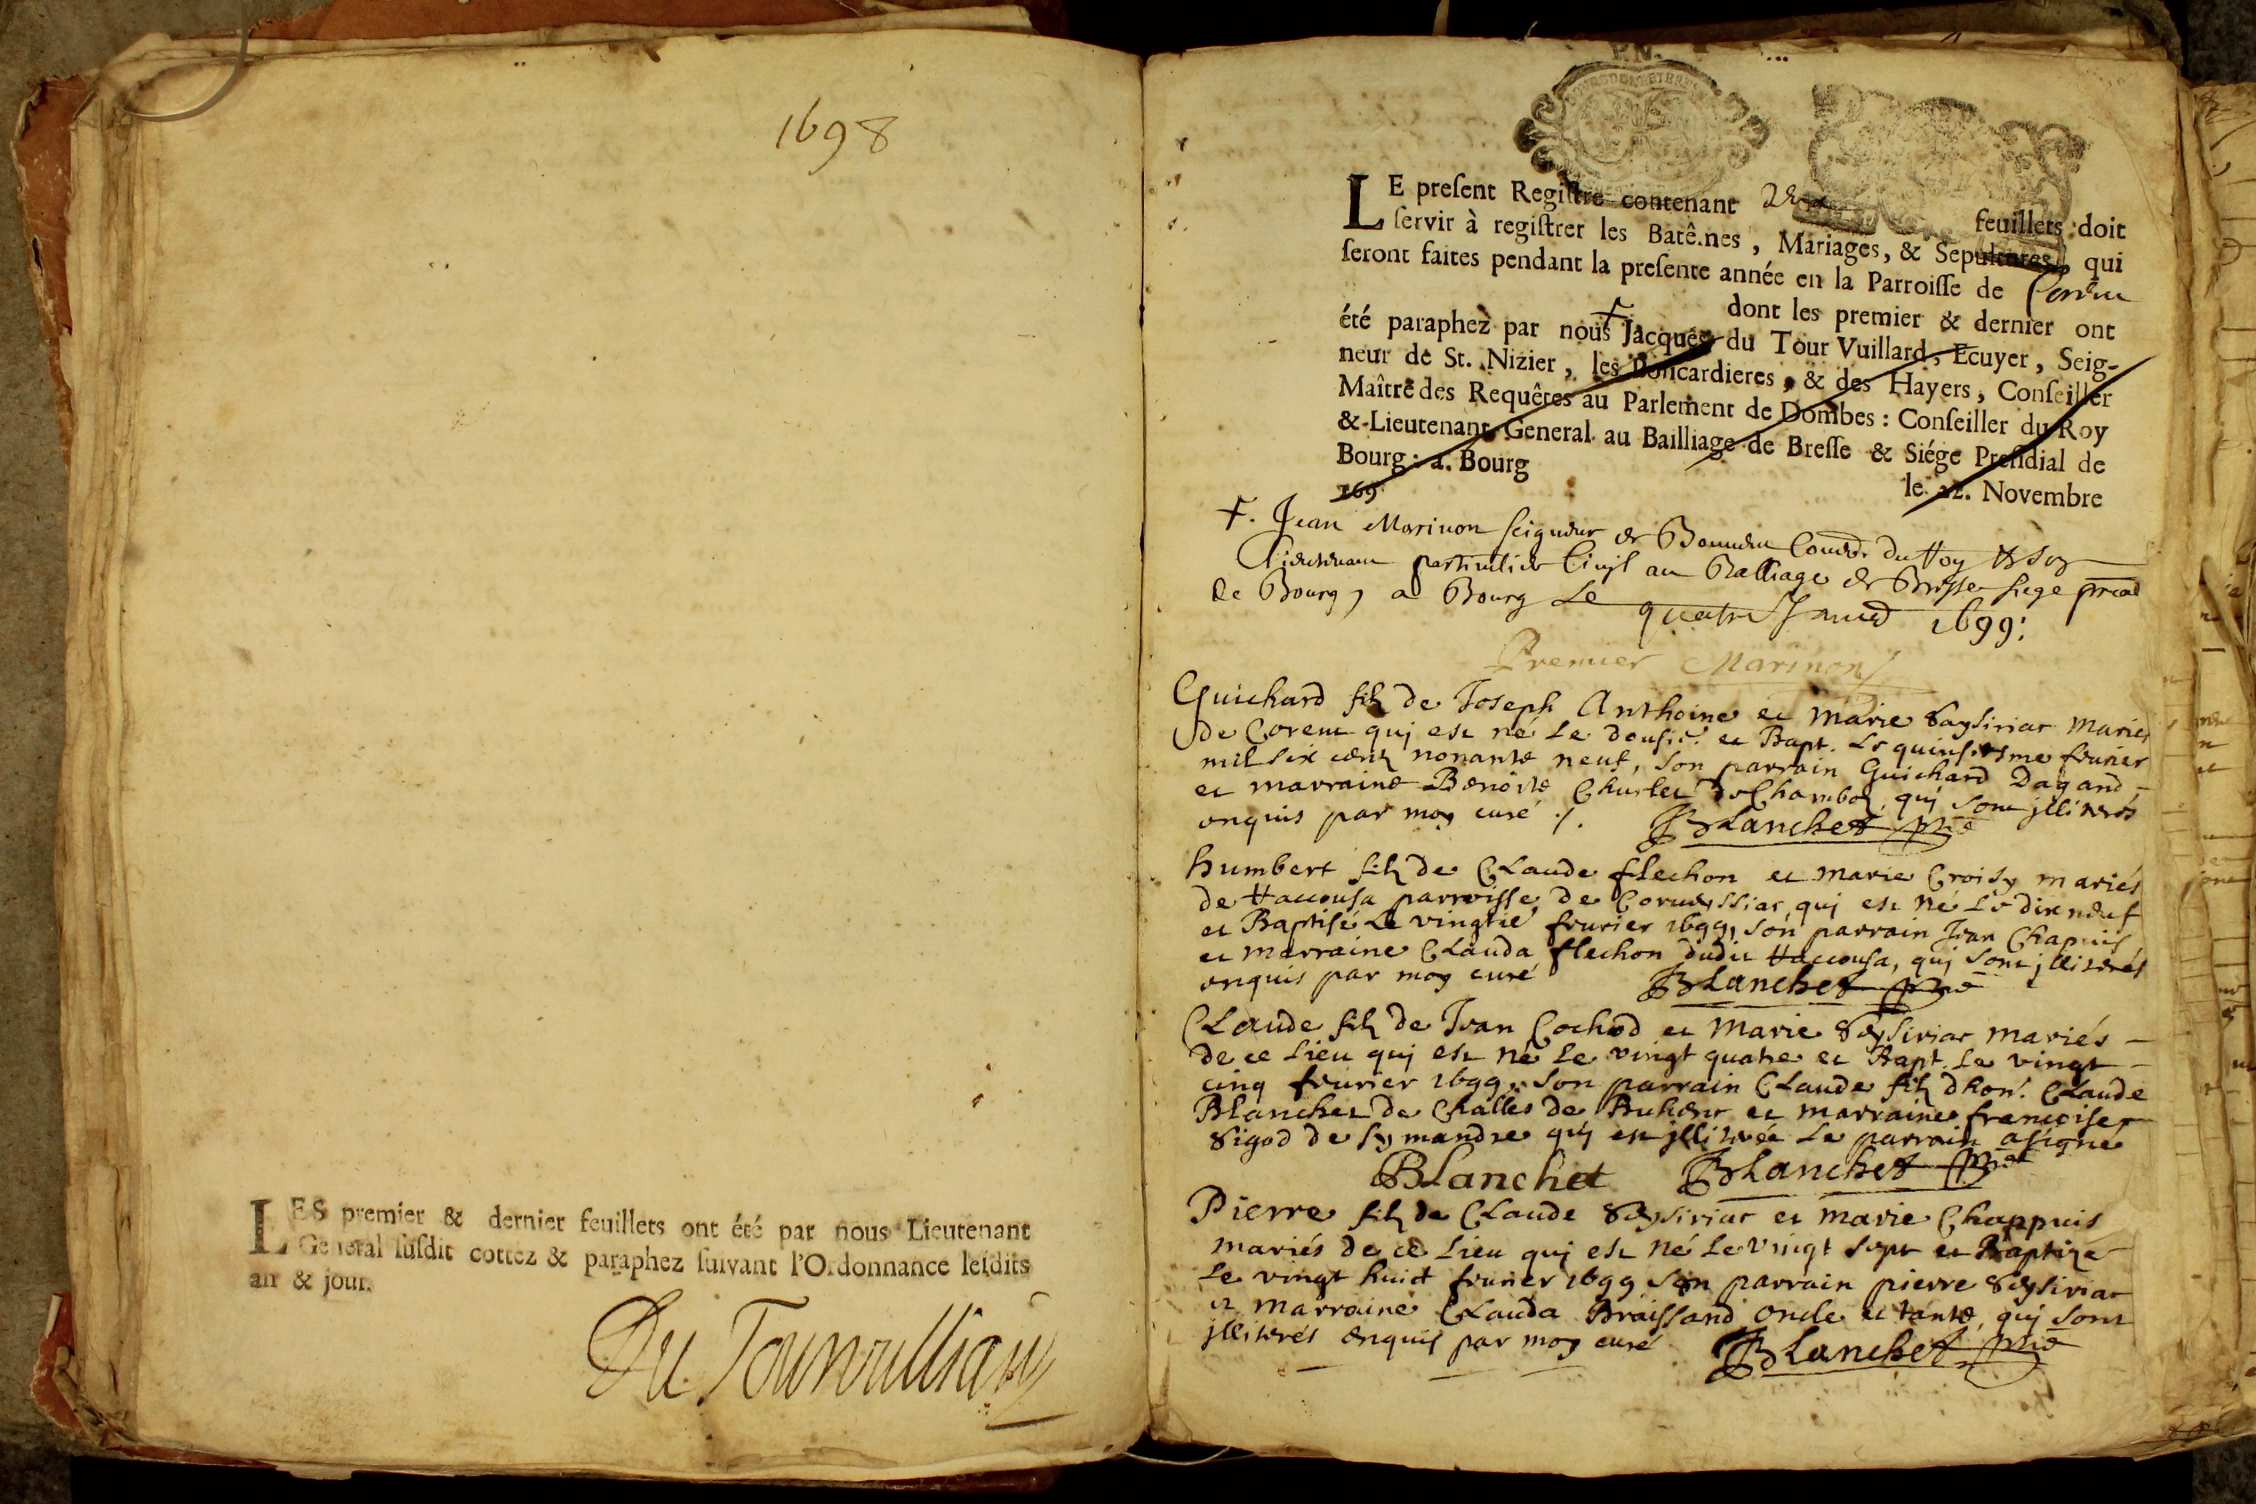 1698
LES premier & dernier feuillets ont été par nous Lieutenant
General ſuſdit cottez & paraphez ſuivant l'Ordonnance leſdits
an & jour.
LE preſent Regiſtre contenant feuillets doit
ſervir à regiſtrer les Batêmes, Mariages, & Sepultures, qui
ſeront faites pendant la preſente année en la Parroiſſe de
dont les premier & dernier ont
été paraphez par nous Jacques du Tour Vuillard, Ecuyer, Seig-
neur de St. Nizier, les Boncardieres, & des Hayers, Conſeiller
Maître des Requêtes au Parlement de Dombes: Conſeiller du Roy
& Lieutenant General au Bailliage de Breſſe & Siége Preſidial de
Bourg: à Bourg le 22. Novembre
169
Jean Marinon seigneur de du Roy
particulier Civil au Balliage de Bresse siege
de Bourg, a Bourg Le quatre 1699.
Premier Marinon
Guichard filz de Joseph Anthoine et Marie Veysiriat Mariés
de Corent qui est né Le et Bapt. Le quinsiesme febvrier
mil six centz nonante neuf, son parrain Guichard Dagand
et marraine Benoite de Chamboz, qui sont jlliterés
enquis par moy curé ./. Blanchet
Humbert filz de Claude flechon et marie Croisy mariés
de parroisse de qui est né Le dixneuf
et Baptisé Le vingtie fevrier 1699, son parrain Jean Chapuis
et marraine Clauda flechon dudit qui sont jlliterés
enquis par moy curé Blanchet
Claude filz de Jean Cochod et Marie Veysiriat mariés
de ce Lieu qui est né Le vingt quatre et Bapt. Le vingt
cinq fevrier 1699, son parrain Claude filz d'hon. Claude
Blanchet de Challes de et marraine françoise
Vigod de symandre qui est jlliterée Le parrain a signé
Blanchet Blanchet
Pierre filz de Claude Veysiriat et marie Chappuis
mariés de ce Lieu qui est né Le vingt sept et Baptizé
Le vingt huict fevrier 1699 son parrain pierre Veysiriat
et marraine Clauda Braissand oncle et tante, qui sont
jlliterés enquis par moy curé Blanchet